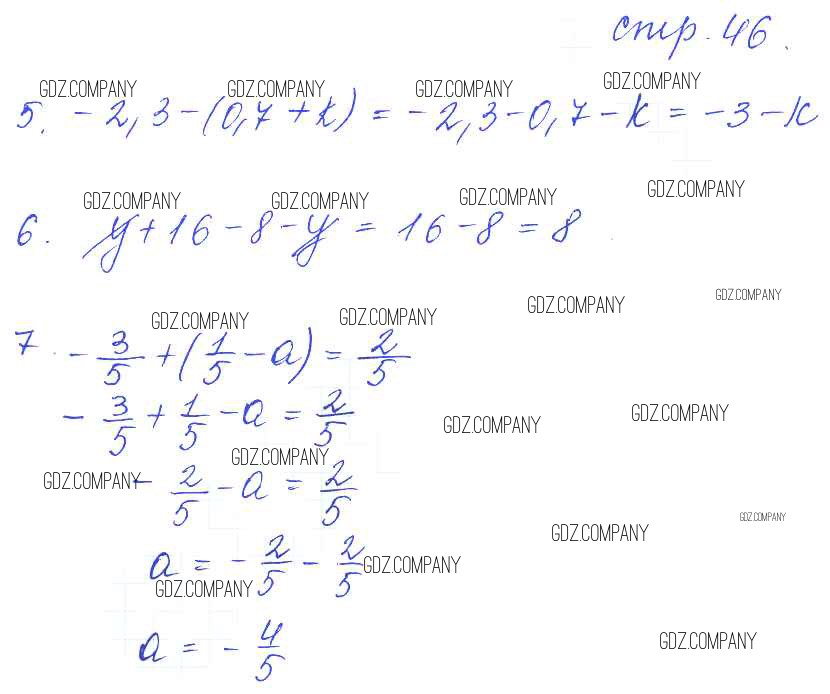 стр. 46.
GDZ.COMPANY GDZ.COMPANY GDZ.COMPANY GDZ.COMPANY
5. -2,3-(0,7+k) = -2,3-0,7-k = -3-k
GDZ.COMPANY GDZ.COMPANY GDZ.COMPANY GDZ.COMPANY
6. y+16-8-y = 16-8=8
GDZ.COMPANY GDZ.COMPANY GDZ.COMPANY GDZ.COMPANY
7. -3/5+(1/5-a)=2/5
-3/5+1/5-a=2/5
GDZ.COMPANY GDZ.COMPANY
GDZ.COMPANY GDZ.COMPANY
-2/5-a=2/5
GDZ.COMPANY GDZ.COMPANY
a=-2/5-2/5
GDZ.COMPANY GDZ.COMPANY
a=-4/5
GDZ.COMPANY